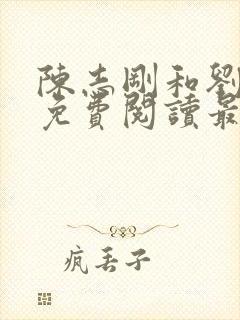 陳志剛和劉
免費閱讀最
疯丢子